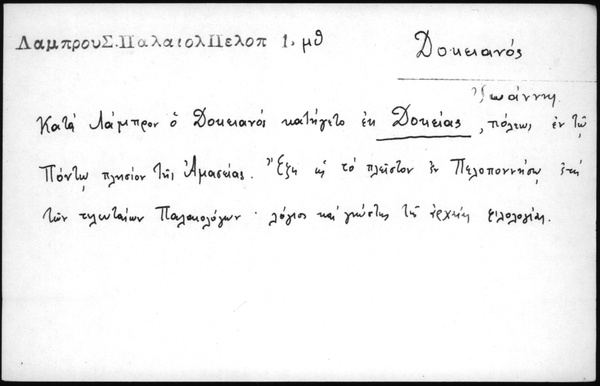 ΛαμπρουΣ.ΠαλαιολΠελοπ 1, μθ
Δοκειανός
Ἰωάννη
Κατὰ Λάμπρον ὁ Δοκειανὸς κατήγετο ἐκ Δοκείας, πόλεως ἐν τῷ
Πόντῳ πλησίον τῆς Ἀμασείας. Ἔζη ὡς τὸ πλεῖστον ἐν Πελοποννήσῳ ἐπὶ
τῶν τελευταίων Παλαιολόγων · λόγιος καὶ γνώστης τῆς ἀρχαίας φιλολογίας.